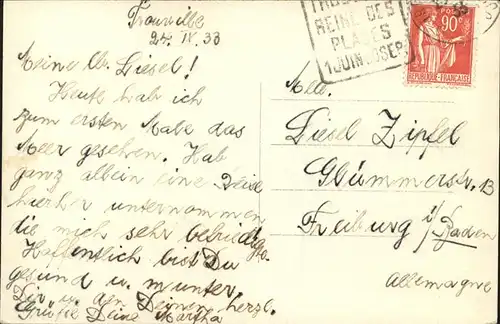 Trouville
24. IV. 33
Meine lb. Liesel!
Heute hab ich
zum ersten Male das
Meer gesehen. Hab
ganz allein eine Reise
hierher unternommen
die mich sehr befriedigte.
Hoffentlich bist Du
gesund u. munter.
Dir u. den Deinen herzl.
Grüße Deine Martha
REINE DES
PLAGES
1 JUIN
90c
POSTES
REPUBLIQUE FRANÇAISE
Mlle.
Liesel Zipfel
Glümmerstr. 13
Freiburg i/Baden
Allemagne